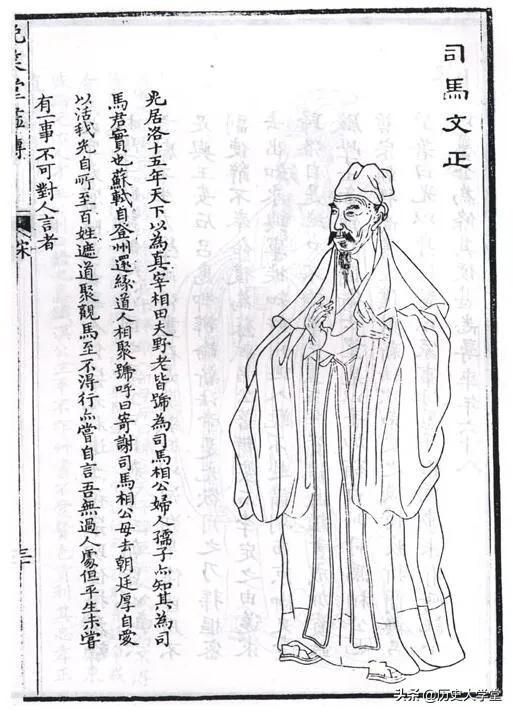 司馬文正
光居洛十五年天下以為真宰相田夫野老皆號為司馬相公婦人孺子亦知其為司
馬君實也蘇軾自登州還緣道人相聚號呼曰寄謝司馬相公毋去朝廷厚自愛
以活我光自所至百姓遮道聚觀馬至不得行亦嘗自言吾無過人處但平生未嘗
有一事不可對人言者
宋
头条 @历史大学堂